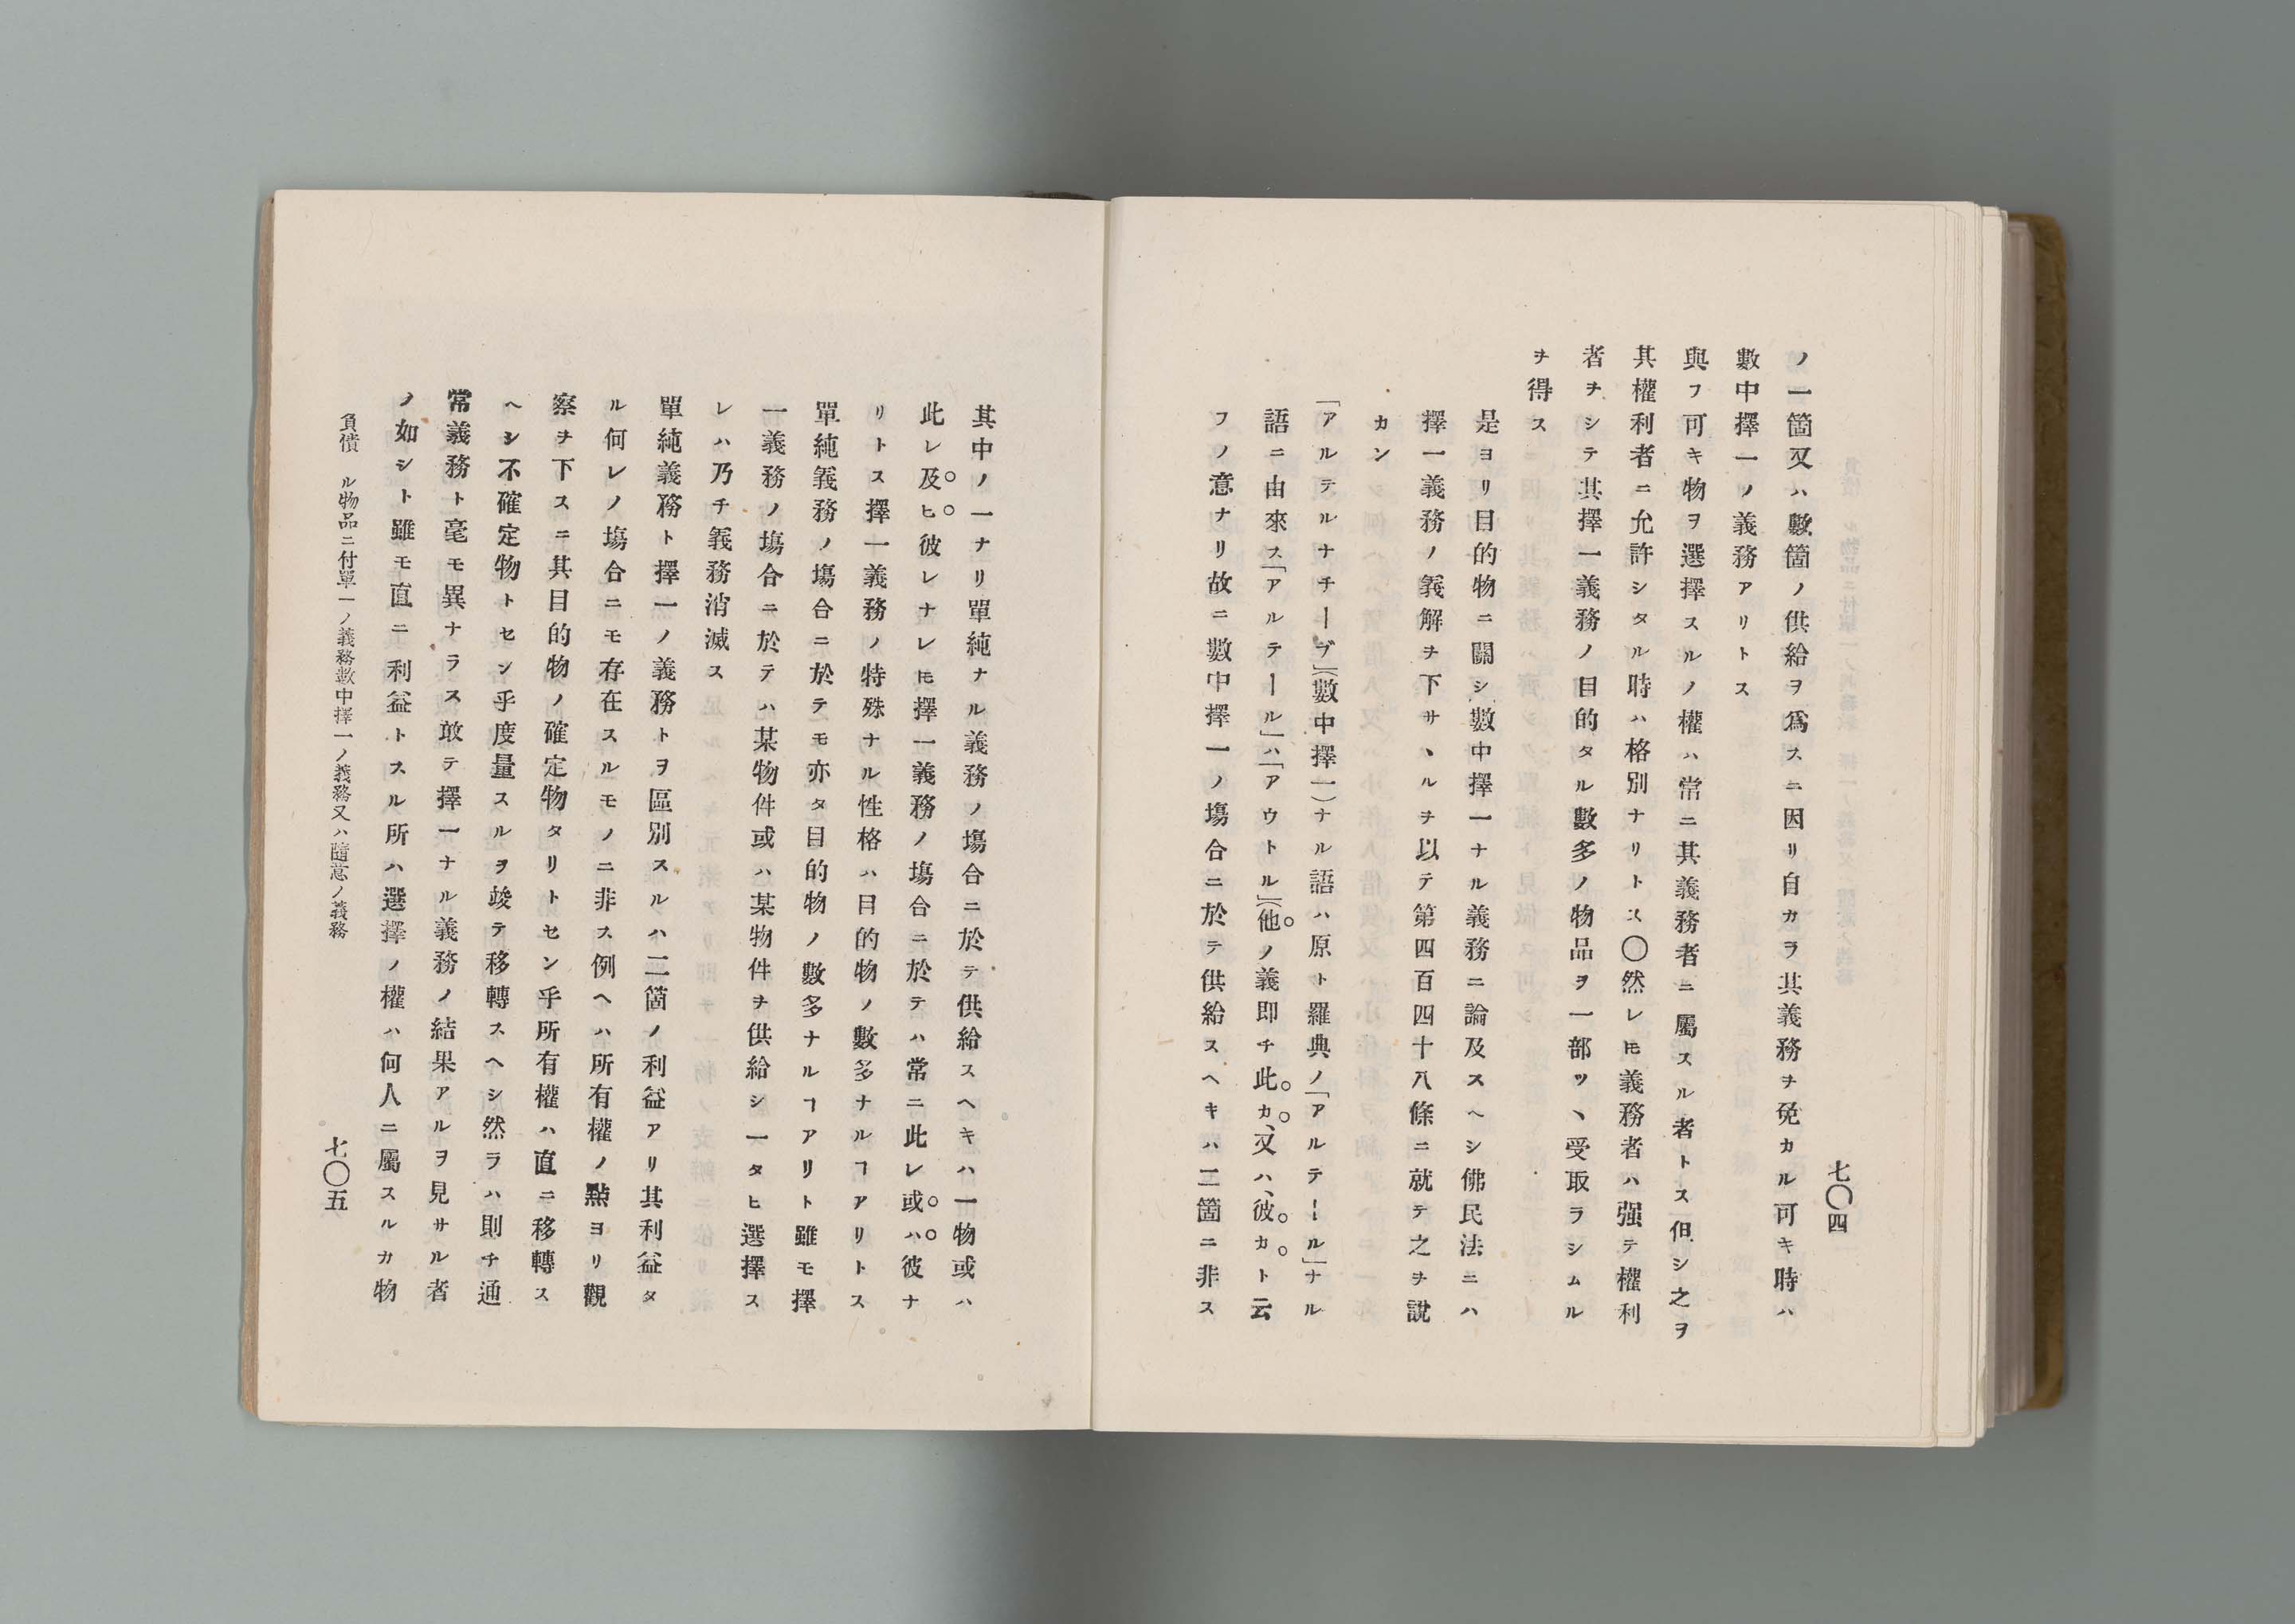 七〇四
ノ一箇又ハ數箇ノ供給ヲ爲スニ因リ自カラ其義務ヲ免カル可キ時ハ
數中擇一ノ義務アリトス
與フ可キ物ヲ選擇スルノ權ハ常ニ其義務者ニ屬スル者トス但シ之ヲ
其權利者ニ允許シタル時ハ格別ナリトス〇然レ𪜈義務者ハ强テ權利
者ヲシテ其擇一義務ノ目的タル數多ノ物品ヲ一部ツヽ受取ラシムル
ヲ得ス
是ヨリ目的物ニ關シ數中擇一ナル義務ニ論及スヘシ佛民法ニハ
擇一義務ノ義解ヲ下サヽルヲ以テ第四百四十八條ニ就テ之ヲ說
カン
「アルテルナチーブ」(數中擇一)ナル語ハ原ト羅典ノ「アルテール」ナル
語ニ由來ス「アルテール」ハ「アウトル」(他ノ義即チ此カ、又ハ、彼カト云
フノ意ナリ故ニ數中擇一ノ塲合ニ於テ供給スヘキハ二箇ニ非ス
其中ノ一ナリ單純ナル義務ノ塲合ニ於テ供給スヘキハ一物或ハ
此レ及ヒ彼レナレ𪜈擇一義務ノ塲合ニ於テハ常ニ此レ或ハ彼ナ
リトス擇一義務ノ特殊ナル性格ハ目的物ノ數多ナルヿアリトス
單純義務ノ塲合ニ於テモ亦タ目的物ノ數多ナルヿアリト雖モ擇
一義務ノ塲合ニ於テハ某物件或ハ某物件ヲ供給シ一タヒ選擇ス
レハ乃チ義務消滅ス
單純義務ト擇一ノ義務トヲ區別スルハ二箇ノ利益アリ其利益タ
ル何レノ塲合ニモ存在スルモノニ非ス例ヘハ所有權ノ點ヨリ觀
察ヲ下スニ其目的物ノ確定物タリトセン乎所有權ハ直ニ移轉ス
ヘシ不確定物トセン乎度量スルヲ竣テ移轉スヘシ然ラハ則チ通
常義務ト毫モ異ナラス敢テ擇一ナル義務ノ結果アルヲ見サル者
ノ如シト雖モ直ニ利益トスル所ハ選擇ノ權ハ何人ニ屬スルカ物
負債　ル物品ニ付單一ノ義務數中擇一ノ義務又ハ隨意ノ義務
七〇五